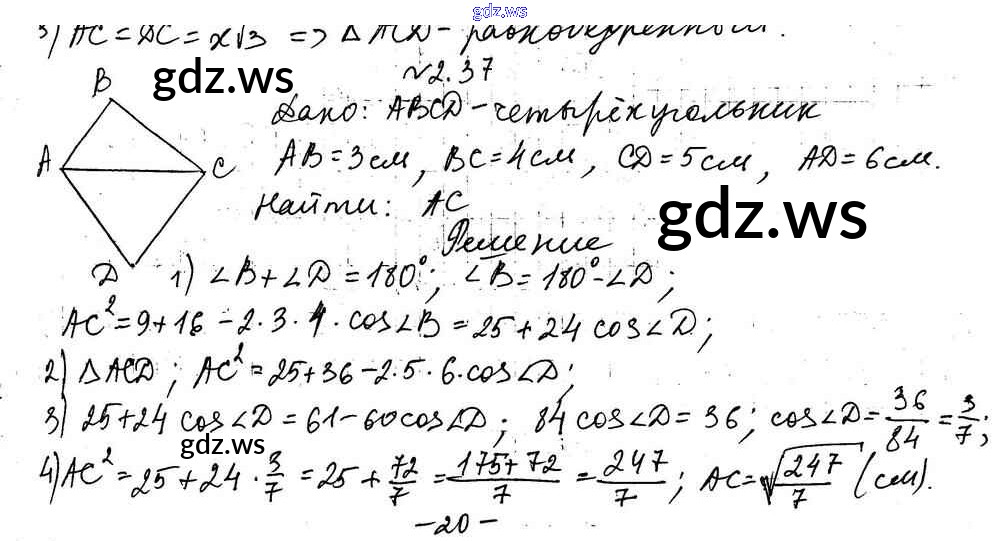 gdz.ws
3) AC = DC = x√3 => Δ ACD - равнобедренный.
№2.37
gdz.ws
B
Дано: ABCD - четырёхугольник
A
C
AB = 3 см, BC = 4 см, CD = 5 см, AD = 6 см.
Найти: AC
gdz.ws
Решение
D
1) ∠B + ∠D = 180°; ∠B = 180° - ∠D;
AC² = 9 + 16 - 2·3·4·cos∠B = 25 + 24 cos∠D;
2) ΔACD; AC² = 25 + 36 - 2·5·6·cos∠D;
3) 25 + 24 cos∠D = 61 - 60 cos∠D; 84 cos∠D = 36; cos∠D = 36/84 = 3/7;
gdz.ws
4) AC² = 25 + 24 · 3/7 = 25 + 72/7 = 175+72/7 = 247/7; AC = √247/7 (см).
-20-